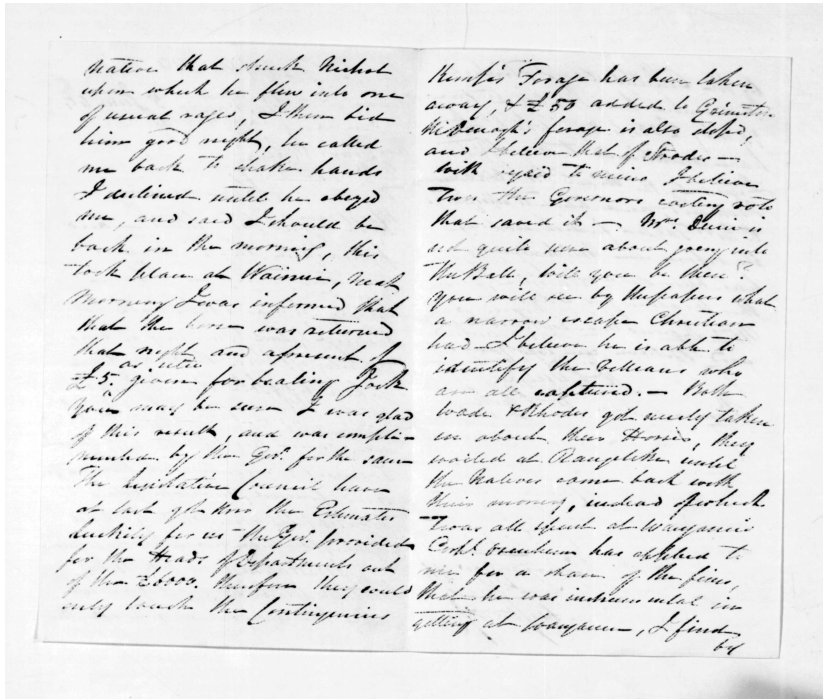 native that struck Nichol
upon which he flew into one
of usual rages, I then bid
him good night, he called
me back to shake hands
I declined until he obeyed
me, and said I should be
back in the morning, this
took place at Wainui, next
Morning I was informed that
that the horse was returned
that night and a present of
£5. as utu given for beating Jack
You may be sure I was glad
of this result, and was compli-
mented by the Govr. for the same
The Legislative Council have
at last got thro the Estimates
luckily for us the Govt. provided
for the Heads of Departments out
of the £6000. therefore they could
only touch the Contingencies
Kemp's "Forage has been taken
away, & £50 added to
McDonogh's forage is also
and I believe that of Strodes —
With regard to mine I believe
twas the Governors casting vote
that saved it — Mrs.
not quite sure about going into
The Ball, will you be there?
You will see by the papers what
a narrow escape Christian
had. I believe he is able to
identify the Villians who
are all captured. — Both
Wade & Rhodes got nicely taken
in about their Horses, they
waited at Rangitikei until
the Natives came back with
their money, instead of which
twas all spent at Wanganui
Capt. has applied to
me for a share of the fine,
that he was instrumental in
getting at Wanganui, I find
by